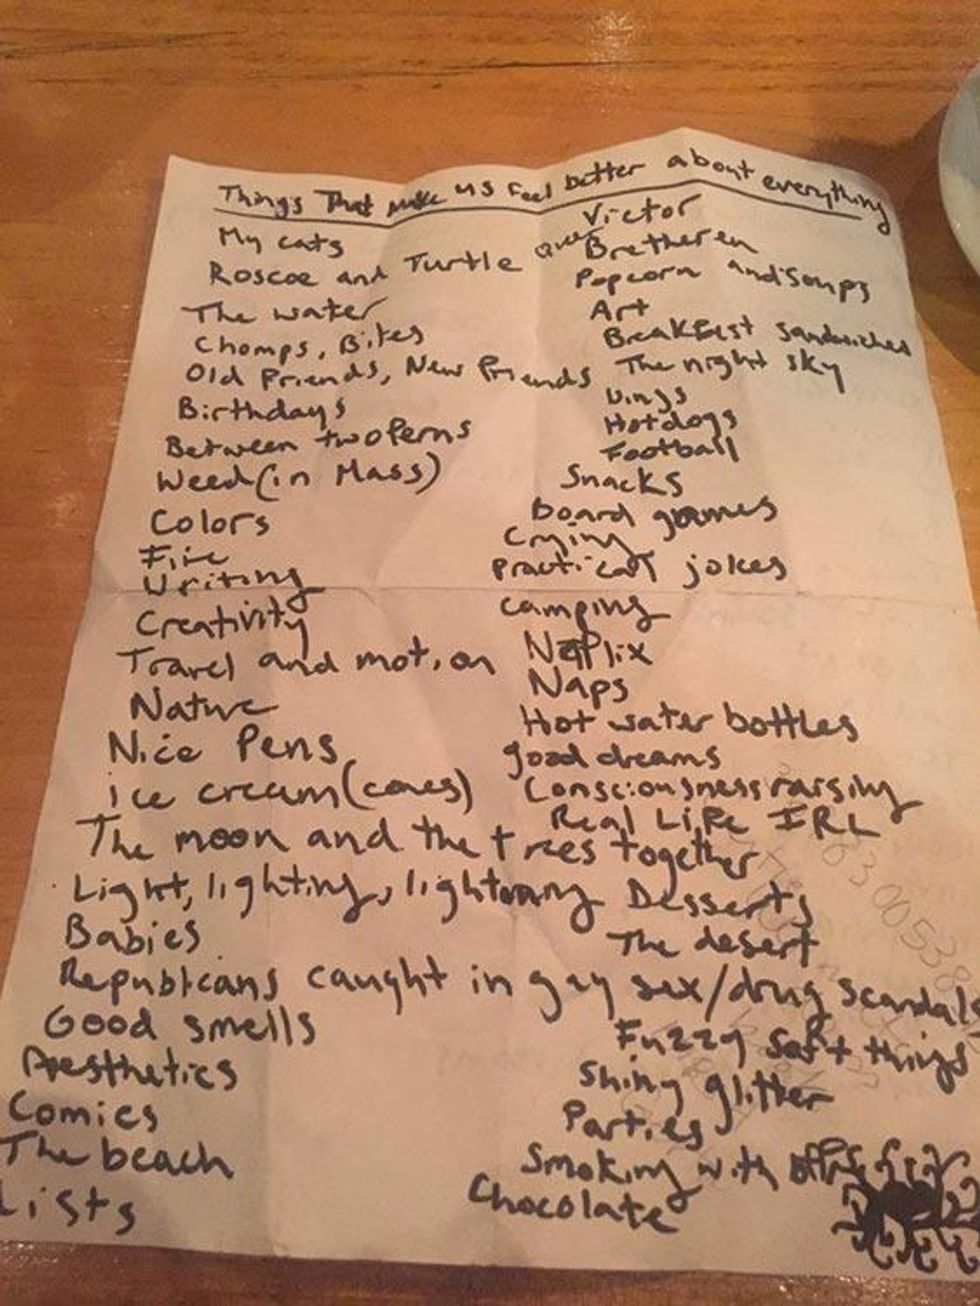 Things That make us feel better about everything
My cats
Roscoe and Turtle
The water
Chomps, Bites
Old friends, New friends
Birthdays
Between two ferns
Weed (in Mass)
Colors
Fire
Writing
Creativity
Travel and motion
Nature
Nice Pens
ice cream (cones)
The moon and the trees together
Light, lighting, lightning
Babies
Republicans caught in gay sex/drug scandals
Good smells
Aesthetics
Comics
The beach
Lists
Victor
Bretheren
Popcorn and soups
Art
Breakfast sandwiches
The night sky
Wings
Hotdogs
Football
Snacks
Board games
Crying
Practical jokes
Camping
Netflix
Naps
Hot water bottles
good dreams
Consciousness raising
Real Life IRL
Desserts
The desert
Fuzzy soft things
Shiny glitter
Parties
Smoking with
Chocolate